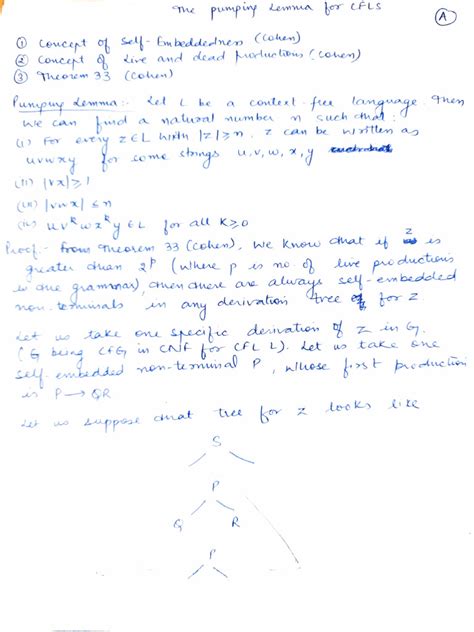 The pumping Lemma for CFLS
(A)
① Concept of Self-Embeddedness (Cohen)
② Concept of Live and dead productions (Cohen)
③ Theorem 33 (Cohen)
Pumping Lemma:- Let L be a context-free language. Then
We can find a natural number n such that:
(i) For every z ∈ L with |z| ≥ n, z can be written as
uvwxy for some strings u, v, w, x, y
(ii) |vx| ≥ 1
(iii) |vwx| ≤ n
(iv) uvᵏwxᵏy ∈ L for all k ≥ 0
Proof.- From Theorem 33 (Cohen), we know that if z is
greater than 2ᵖ (where p is no of live productions
in the grammar), then there are always self-embedded
non-terminals in any derivation tree for z
Let us take one specific derivation of z in G.
(G being CFG in CNF for CFL L). Let us take one
self-embedded non-terminal P, whose first production
is P → QR
Let us suppose that tree for z looks like
S
P
Q R
P